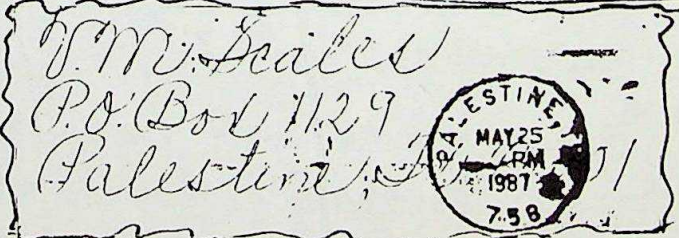 V.M. Scales
P.O. Box 1129
Palestine,
PALESTINE, T
MAY 25
PM
1987
758